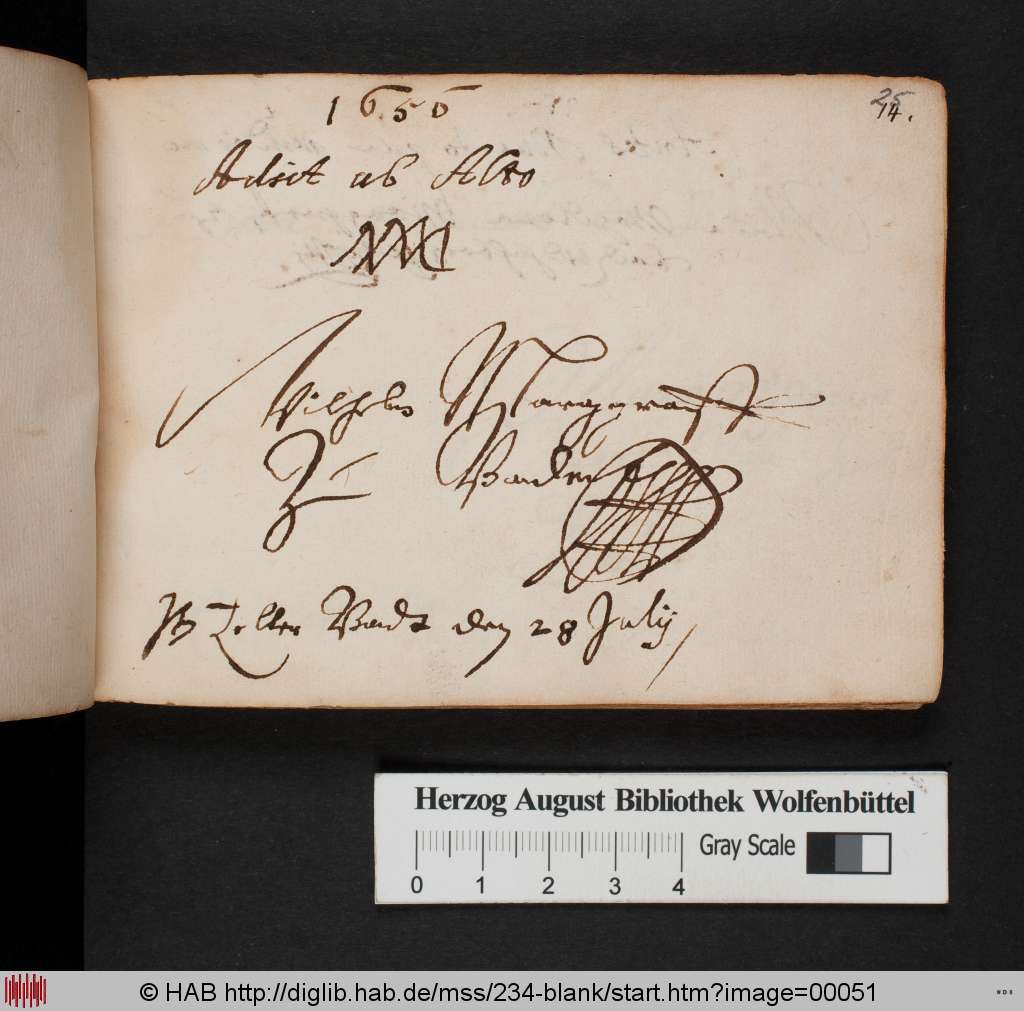 25
14.
1650
Adsit ab Alto
Wilhelm Marggraff
Zu Baden
Zeller Badt den 28 July
Herzog August Bibliothek Wolfenbüttel
Gray Scale
0 1 2 3 4
© HAB http://diglib.hab.de/mss/234-blank/start.htm?image=00051